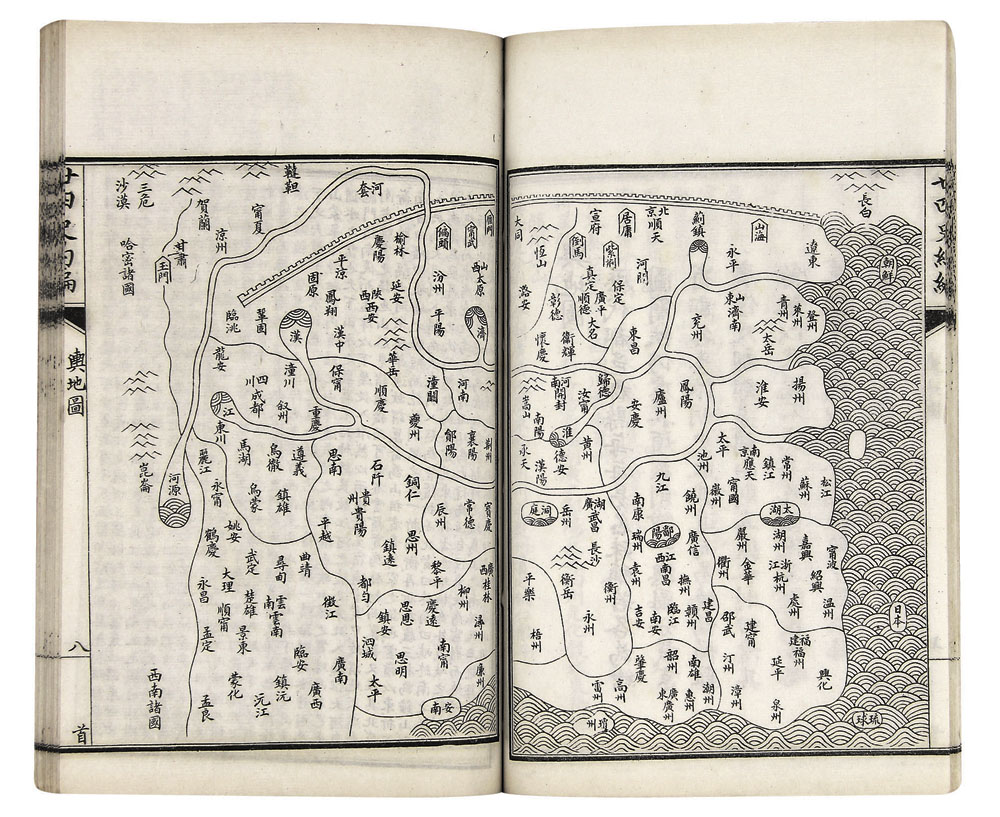 輿地圖
八
首
長白
遼東
朝鮮
山海
永平
薊鎮
北京
順天
居庸
宣府
紫荊
倒馬
河間
保定
真定
順德
廣平
大名
恆山
大同
潞安
彰德
衛輝
懷慶
東昌
兗州
山東
濟南
青州
萊州
登州
太岳
揚州
淮安
鳳陽
廬州
安慶
歸德
河南
開封
汝甯
嵩山
南陽
淮
德安
黃州
承天
漢陽
太平
池州
南京
應天
鎮江
常州
蘇州
松江
甯國
徽州
太湖
九江
饒州
南康
鄱陽
廣信
瑞州
袁州
江西
南昌
撫州
臨江
建昌
贛州
吉安
南安
湖廣
武昌
岳州
洞庭
長沙
衡岳
衡州
永州
平樂
梧州
嚴州
湖州
嘉興
甯波
浙江
杭州
紹興
金華
衢州
處州
溫州
日本
邵武
建甯
福建
福州
延平
汀州
興化
漳州
泉州
琉球
韶州
南雄
肇慶
廣東
廣州
惠州
潮州
高州
雷州
瓊州
鞑靼
河套
三危
沙漠
賀蘭
甯夏
涼州
甘肅
玉門
哈密諸國
榆林
慶陽
偏頭
甯武
雁門
平涼
固原
延安
汾州
山西
太原
鳳翔
陝西
西安
平陽
濟
臨洮
鞏固
漢
漢中
華岳
龍安
潼川
保甯
順慶
潼關
河南
四川
成都
叙州
重慶
夔州
鄖陽
襄陽
荊州
江
東川
馬湖
烏撒
遵義
思南
石阡
銅仁
麗江
崑崙
河源
永甯
烏蒙
鎮雄
貴州
貴陽
辰州
常德
寶慶
姚安
鶴慶
平越
思州
武定
尋甸
曲靖
鎮遠
黎平
廣西
桂林
永昌
大理
順甯
楚雄
景東
雲南
雲南
澂江
都勻
鎮安
思恩
慶遠
柳州
潯州
孟定
臨安
泗城
思明
南甯
廣南
太平
廉州
安南
西南諸國
孟良
蒙化
沅江
鎮沅
廣西